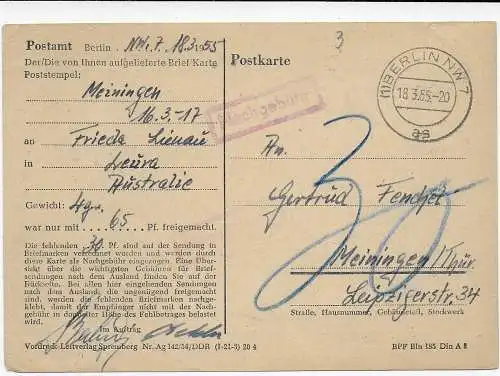 Postamt Berlin NW. 7. 18.3.1955
Der/Die von Ihnen aufgelieferte Brief/Karte
Poststempel:
Meiningen
16.3.-17
an Frieda Lienau
in Leura
Australie
Gewicht: 4 gr.
war nur mit 65 Pf. freigemacht.
Die fehlenden 30 Pf. sind auf der Sendung in
Briefmarken verrechnet worden und werden durch
diese Karte als Nachgebühr eingezogen. Eine Über-
sicht über die wichtigsten Gebühren für Brief-
sendungen nach dem Ausland finden Sie auf der
Rückseite. Bei allen hier eingehenden Sendungen
nach dem Ausland, die ungenügend freigemacht
sind, werden die fehlenden Briefmarken nachge-
klebt, damit der Empfänger nicht mit der Nachge-
bühr in doppelter Höhe des Fehlbetrages belastet
wird.
Im Auftrag
Vordruck-Leitverlag Spremberg Nr. Ag 142/54/DDR (1-21-3) 20 4
3
Postkarte
Nachgebühr
(1) BERLIN NW 7
18.3.55.-20
as
An.
Gertrud Fendel
30
Meiningen/Thür.
Leipzigerstr. 34
Straße, Hausnummer, Gebäudeteil, Stockwerk
BPF Bln 185 Din A 6